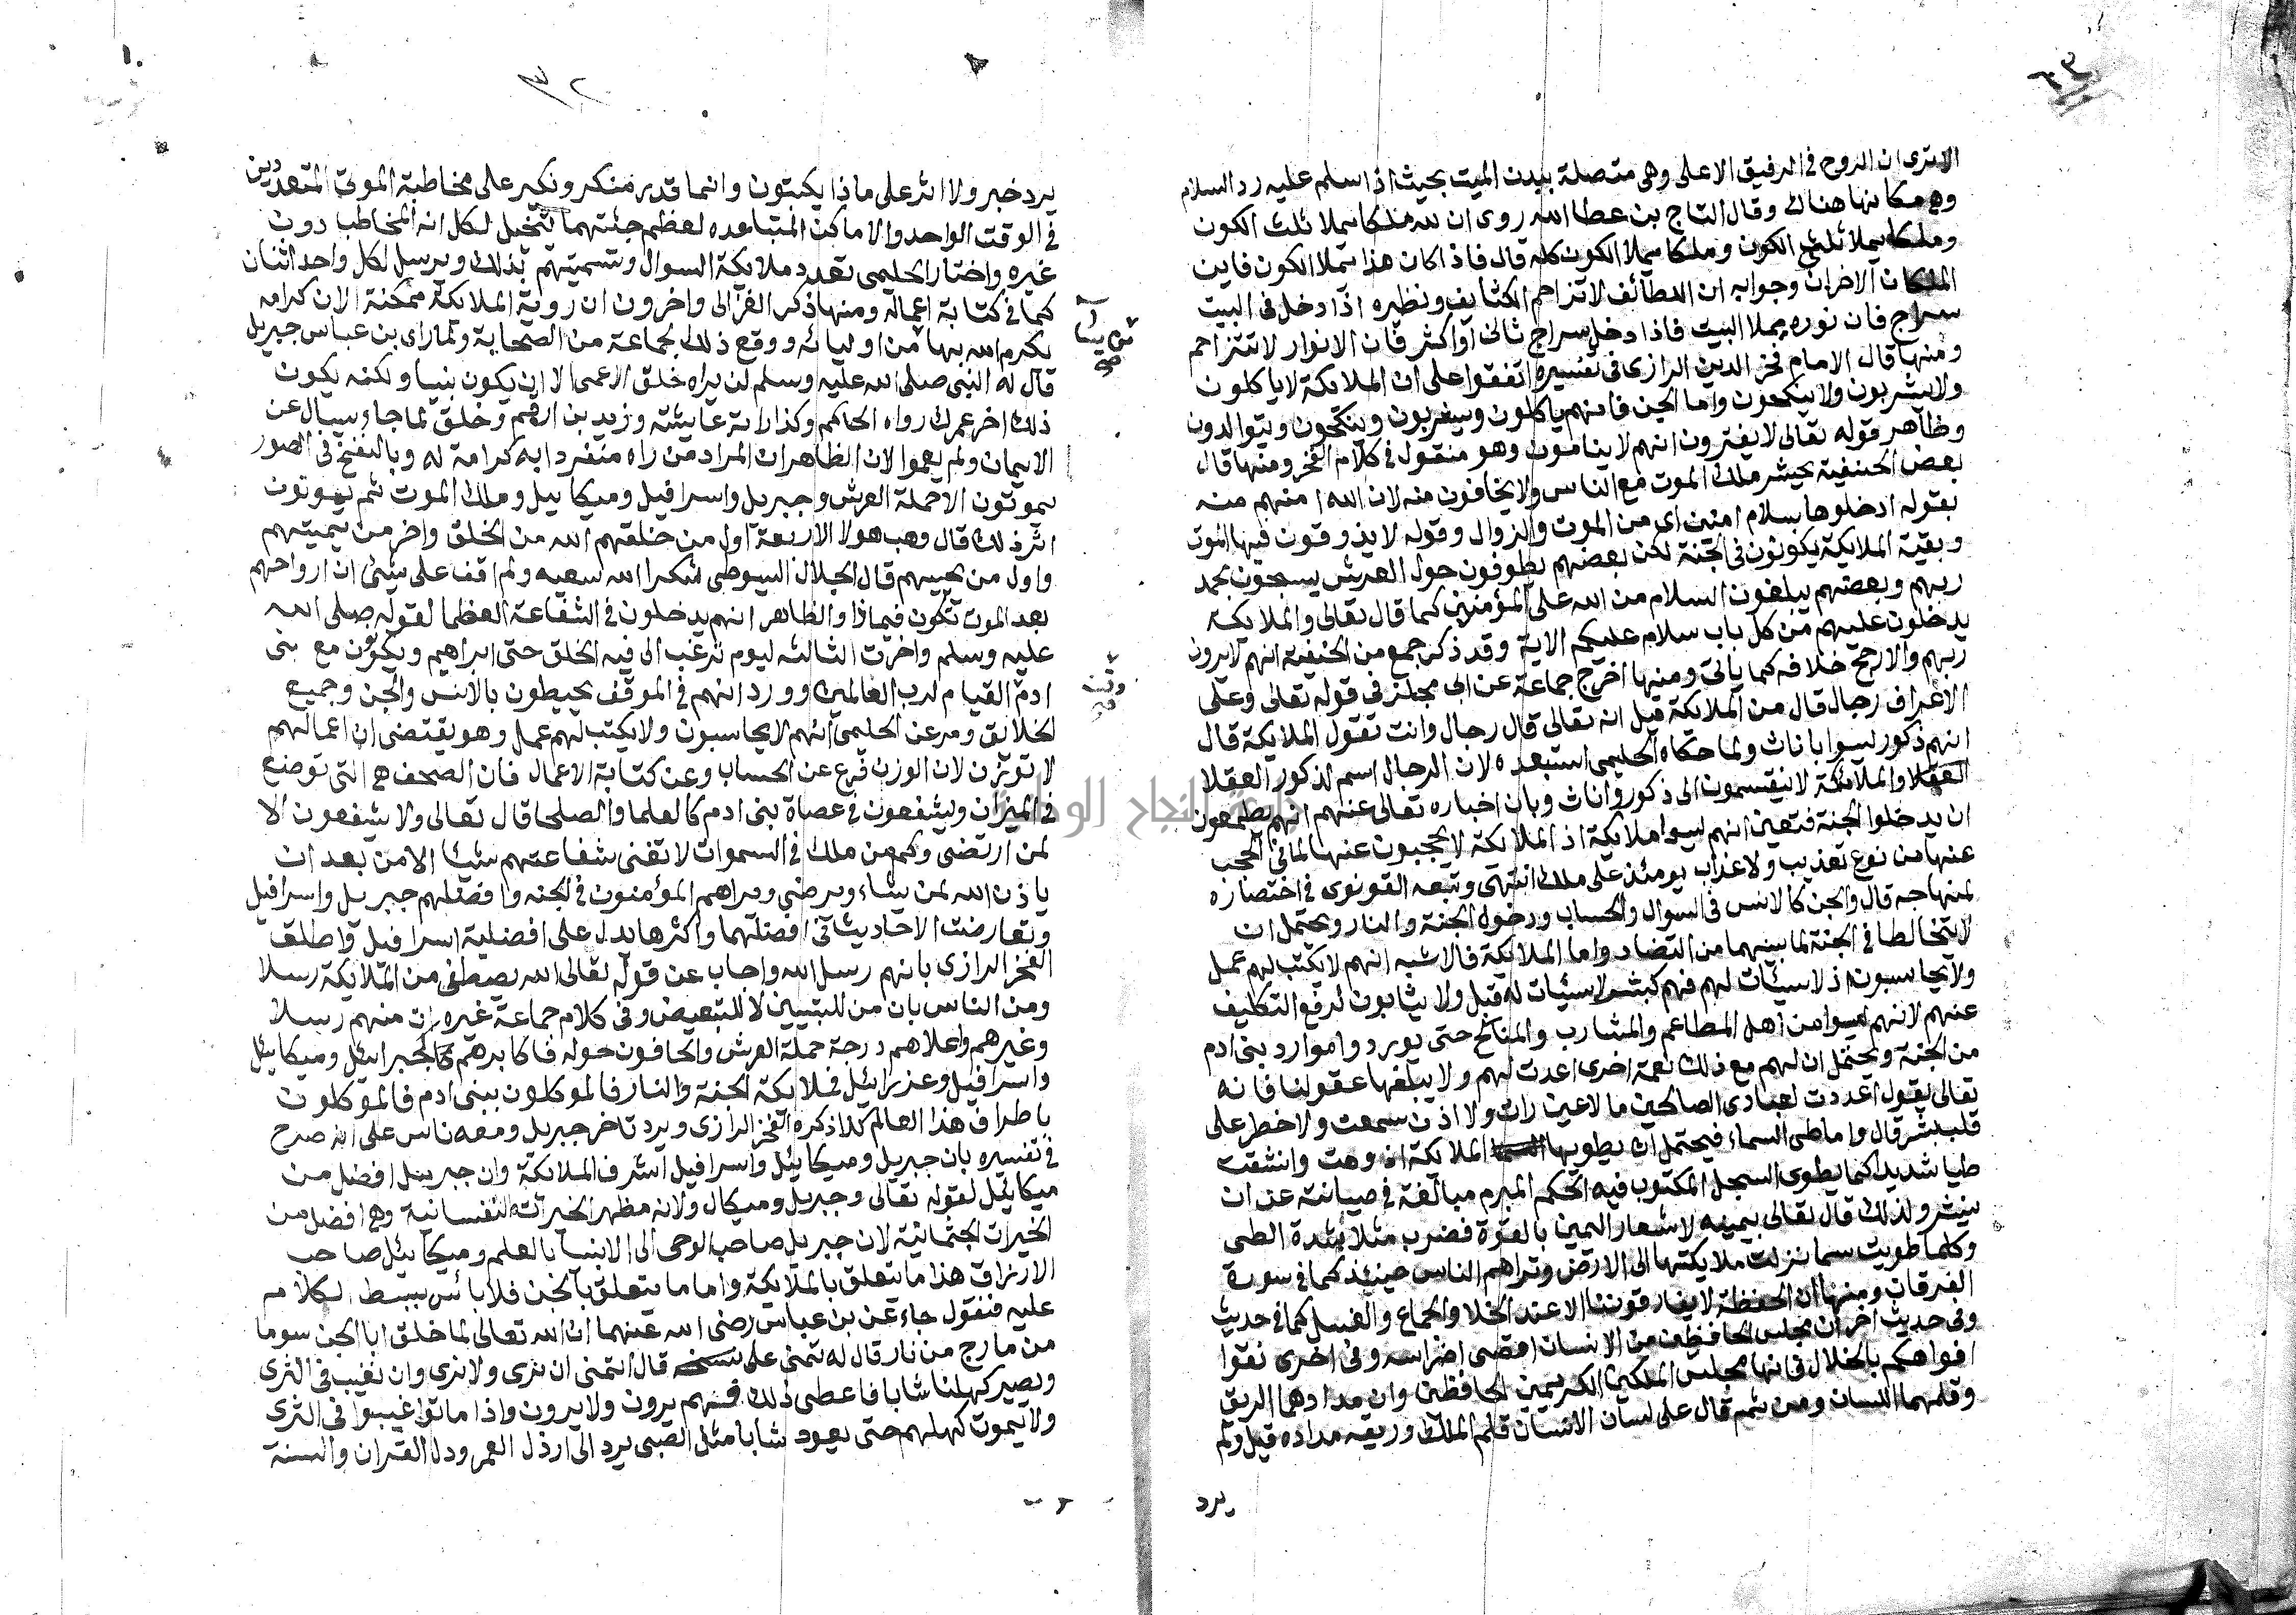 ٣٢
الا ترى ان الروح فى الرفيق الاعلى وهى متصلة ببدن الميت بحيث اذا سلم عليه رد السلام
وهو مكانها هناك وقال التاج بن عطا الله روى ان لله ملكا يملا ثلث الكون
وملكا يملا ثلثى الكون وملكا يملا الكون كله قال فاذا كان هذا يملا الكون فاين
الملكان الاخران وجوابه ان اللطائف لا تتزاحم الكثايف ونظيره اذا دخل فى البيت
سراج فان نوره يملا البيت فاذا دخل سراج ثانى او اكثر فان الانوار لا تتزاحم
ومنها قال الامام فخر الدين الرازى فى تفسيره اتفقوا على ان الملايكة لا ياكلون
ولا يشربون ولا ينكحون واما الجن فانهم ياكلون ويشربون وينكحون ويتوالدون
وظاهر قوله تعالى لا يفترون انهم لا ينامون وهو منقول فى كلام الفخر ومنها قال
بعض الحنفية يحشر ملك الموت مع الناس ولا يخافون منه لان الله امنهم منه
بقوله ادخلوها بسلام امنين اى من الموت والزوال وقوله لا يذوقون فيها الموت
وبقية الملايكة يكونون فى الجنة لكن بعضهم يطوفون حول العرش يسبحون بحمد
ربهم وبعضهم يبلغون السلام من الله على المؤمنين كما قال تعالى والملايكة
يدخلون عليهم من كل باب سلام عليكم الاية وقد ذكر جمع من الحنفية انهم لا يرون
ربهم والارجح خلافه كما ياتى ومنها اخرج جماعة عن ابى مجلز فى قوله تعالى وعلى
الاعراف رجال قال من الملايكة قيل انه تعالى قال رجال وانت تقول الملايكة قال
انهم ذكور ليسوا باناث ولما حكاه الحليمى استبعده لان الرجال اسم لذكور العقلا
العقلا والملائكة لا ينقسمون الى ذكور واناث وبان اخباره تعالى عنهم انهم يطمعون
ان يدخلوا الجنة فتعين انهم ليسوا ملايكة اذ الملايكة لا يحجبون عنها لما فى الحجب
عنها من نوع تعذيب ولا عذاب يومئذ على ملك انتهى وتبعه القونوى فى اختصاره
لمنهاجه قال والجن كالانس فى السوال والحساب ودخول الجنة والنار ويحتمل ان
لا يتخالطا فى الجنة لما بينهما من التضاد واما الملائكة فالاشبه انهم لا يكتب لهم عمل
ولا يحاسبون اذ لا سيئات لهم فهم كبشر لا سئيات له قيل ولا يثابون لرفع التكليف
عنهم لانهم ليسوا من اهل المطاعم والمشارب والمناكح حتى يوردوا موارد بنى ادم
من الجنة ويحتمل ان لهم مع ذلك نعمة اخرى اعدت لهم ولا يبلغها عقولنا فانه
تعالى يقول اعددت لعبادى الصالحين ما لا عين رات ولا اذن سمعت ولا خطر على
قلب بشر قال واما طى السماء فيحتمل ان يطويها الملايكة اذ وهت وانشقت
طيا شديدا كما يطوى السجل المكتوب فيه الحكم المبرم مبالغة فى صيانته عن ان
ينشر ولذلك قال تعالى بيمينه لاشعار اليمين بالقوة فضرب مثلا لشدة الطى
وكلما طويت سما نزلت ملايكتها الى الارض وتراهم الناس حينئذ كما فى سورة
الفرقان ومنها ان الحفظة لا يفارقوننا الا عند الخلا والجماع والغسل كما فى حديث
وفى حديث اخر ان مجلس الحافظين من الانسان اقصى اضراسه وفى اخرى نقوا
افواهكم بالخلال فانها مجلس الملكين الكريمين الحافظين وان مدادهما الريق
وقلمهما اللسان ومن ثم قال على لسان الانسان قلم الملك وريقه مداده قيل ولم
يرد
يرد خبر ولا اثر على ماذا يكتبون وانما قدر منكر ونكير على مخاطبة الموتى المتعددين
فى الوقت الواحد والاماكن المتباعده لعظم جثتهما يتخيل لكل انه المخاطب دون
غيره واختار الحليمى تعدد ملايكة السوال وتسميتهم بذلك ويرسل لكل واحد اثنان
كما فى كتابة اعماله ومنها ذكر الغزالى واخرون ان روية الملايكة ممكنة الان كرامه
يكرم الله بها من اوليائه ووقع ذلك لجماعة من الصحابة ولما راى بن عباس جبريل
قال له النبى صلى الله عليه وسلم لن يراه خلق الا عمى الا ان يكون نبيا ولكنه يكون
ذلك اخر عمرك رواه الحاكم وكذا راته عايشة وزيد بن ارقم وخلق لما جاء يسال عن
الايمان ولم يعموا لان الظاهر ان المراد من راه منفردا به كرامة له وبالنفخ فى الصور
يموتون الا حملة العرش وجبريل واسرافيل وميكاييل وملك الموت ثم يموتون
اثر ذلك قال وهب هولا الاربعة اول من خلقهم الله من الخلق واخر من يميتهم
واول من يحييهم قال الجلال السيوطى شكرا لله سعيه ولم اقف على شئ ان ارواحهم
بعد الموت تكون فيماذا والظاهر انهم يدخلون فى الشفاعة العظما لقوله صلى الله
عليه وسلم واخرت الثالثه ليوم ترغب الى فيه الخلق حتى ابراهيم ويكونون مع بنى
ادم القيام لرب العالمين وورد انهم فى الموقف يحيطون بالانس والجن وجميع
الخلايق ومر عن الحليمى انهم لا يحاسبون ولا يكتب لهم عمل وهو يقتضى ان اعمالهم
لا توزن لان الوزن فرع عن الحساب وعن كتابة الاعمال فان الصحف هى التى توضع
فى الميزان ويشفعون فى عصاة بنى ادم كالعلما والصلحا قال تعالى ولا يشفعون الا
لمن ارتضى وكم من ملك فى السموات لا تغنى شفاعتهم شيئا الا من بعد ان
ياذن الله لمن يشاء ويرضى ويراهم المؤمنون فى الجنه وافضلهم جبريل واسرافيل
وتعارضت الاحاديث فى افضلهما واكثرها يدل على افضلية اسرافيل واطلق
الفخر الرازى بانهم رسل الله واجاب عن قوله تعالى الله يصطفى من الملايكة رسلا
ومن الناس بان من للتبيين لا للتبعيض وفى كلام جماعة غيره ان منهم رسلا
وغيرهم واعلاهم درجة حملة العرش والحافون حوله فاكابرهم كجبرائيل وميكائيل
واسرافيل وعزرائيل فملايكة الجنة والنار فالموكلون ببنى ادم فالموكلون
باطراف هذا العالم كذا ذكره الفخر الرازى ويرد تاخر جبريل ومعه ناس على انه صرح
فى تفسيره بان جبريل وميكائيل واسرافيل اشرف الملايكة وان جبريل افضل من
ميكائيل لقوله تعالى وجبريل وميكال ولانه مظهر الخيرات النفسانية وهى افضل من
الخيرات الجثمانية لان جبريل صاحب الوحى الى الانبيا بالعلم وميكائيل صاحب
الارزاق هذا ما يتعلق بالملايكة واما ما يتعلق بالجن فلا بائس ببسط الكلام
عليه فنقول جاء عن بن عباس رضى الله عنهما ان الله تعالى لما خلق ابا الجن سوما
من مارج من نار قال له تمنى على قال اتمنى ان نرى ولا نرى وان نغيب فى الثرى
ويصير كهلنا شابا فاعطى ذلك فهم يرون ولا يرون واذا ماتوا غيبوا فى الثرى
ولا يموت كهلهم حتى يعود شابا مثل الصبى يرد الى ارذل العمر ودل القران والسنة
جامعة النجاح الوطنية